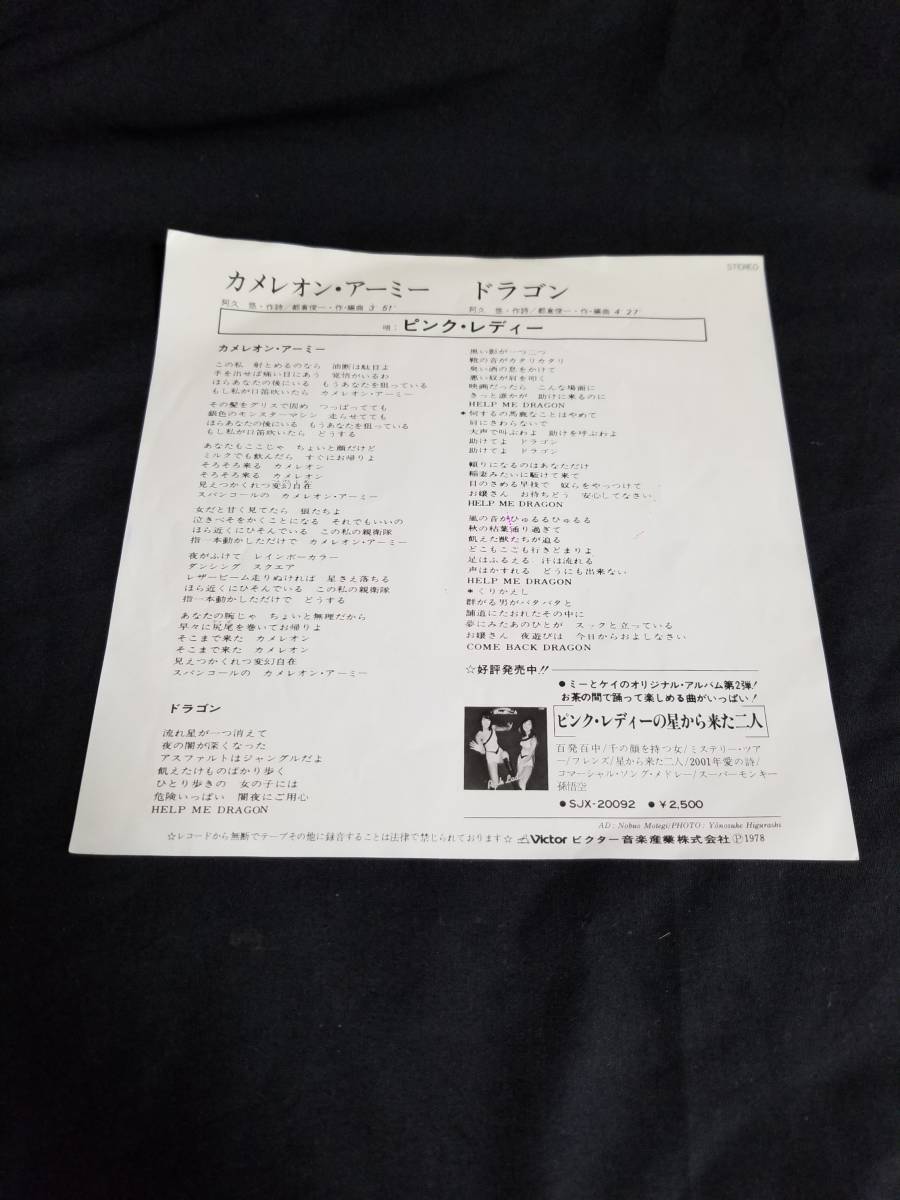 STEREO
カメレオン・アーミー
阿久 悠・作詩/都倉俊一・作・編曲 3′51″
ドラゴン
阿久 悠・作詩/都倉俊一・作・編曲 4′27″
唄：ピンク・レディー
カメレオン・アーミー
この私 射とめるのなら 油断は駄目よ
手を出せば痛い目にあう 覚悟がいるわ
ほらあなたの後にいる もうあなたを狙っている
もし私が口笛吹いたら カメレオン・アーミー
その髪をグリスで固め つっぱってても
銀色のモンスターマシン 走らせてても
ほらあなたの後にいる もうあなたを狙っている
もし私が口笛吹いたら どうする
あなたもここじゃ ちょいと顔だけど
ミルクでも飲んだら すぐにお帰りよ
そろそろ来る カメレオン
そろそろ来る カメレオン
見えつかくれつ変幻自在
スパンコールの カメレオン・アーミー
女だと甘く見てたら 狼たちよ
泣きべそをかくことになる それでもいいの
ほら近くにひそんでいる この私の親衛隊
指一本動かしただけで カメレオン・アーミー
夜がふけて レインボーカラー
ダンシング スクエア
レザービーム走りぬければ 星さえ落ちる
ほら近くにひそんでいる この私の親衛隊
指一本動かしただけで どうする
あなたの腕じゃ ちょいと無理だから
早々に尻尾を巻いてお帰りよ
そこまで来た カメレオン
そこまで来た カメレオン
見えつかくれつ変幻自在
スパンコールの カメレオン・アーミー
ドラゴン
流れ星が一つ消えて
夜の闇が深くなった
アスファルトはジャングルだよ
飢えたけものばかり歩く
ひとり歩きの 女の子には
危険いっぱい 闇夜にご用心
HELP ME DRAGON
黒い影が一つ二つ
靴の音がカタリカタリ
臭い酒の息をかけて
悪い奴が肩を叩く
映画だったら こんな場面に
きっと誰かが 助けに来るのに
HELP ME DRAGON
＊何するの馬鹿なことはやめて
肩にさわらないで
大声で叫ぶわよ 助けを呼ぶわよ
助けてよ ドラゴン
助けてよ ドラゴン
頼りになるのはあなただけ
稲妻みたいに駆けて来て
目のさめる早技で 奴らをやっつけて
お嬢さん お待ちどう 安心してなさい
HELP ME DRAGON
風の音がひゅるるひゅるる
秋の枯葉通り過ぎて
飢えた獣たちが迫る
どこもここも行きどまりよ
足はふるえる 汗は流れる
声はかすれる どうにも出来ない
HELP ME DRAGON
＊くりかえし
群がる男がバタバタと
舗道にたおれたその中に
夢にみたあのひとが スックと立っている
お嬢さん 夜遊びは 今日からおよしなさい
COME BACK DRAGON
☆好評発売中!!
●ミーとケイのオリジナル・アルバム第2弾！
お茶の間で踊って楽しめる曲がいっぱい！
ピンク・レディーの星から来た二人
百発百中/千の顔を持つ女/ミステリー・ツア
ー/フレンズ/星から来た二人/2001年愛の詩/
コマーシャル・ソング・メドレー/スーパーモンキー
孫悟空
●SJX-20092 ●￥2,500
AD : Nobuo Motegi/PHOTO : Yōnosuke Higurashi
☆レコードから無断でテープその他に録音することは法律で禁じられております☆
Victor ビクター音楽産業株式会社 Ⓟ1978